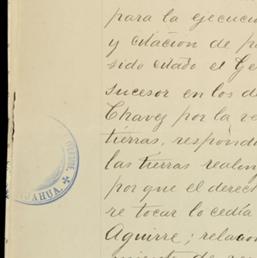 para la ejecució
y citación de p
sido citado el Ge
sucesor en los d
Chavez por la ve
tierras, respondi
las tierras realen
por que el derech
re tocar lo cedía
Aguirre; relacon
miento de
AHUA.